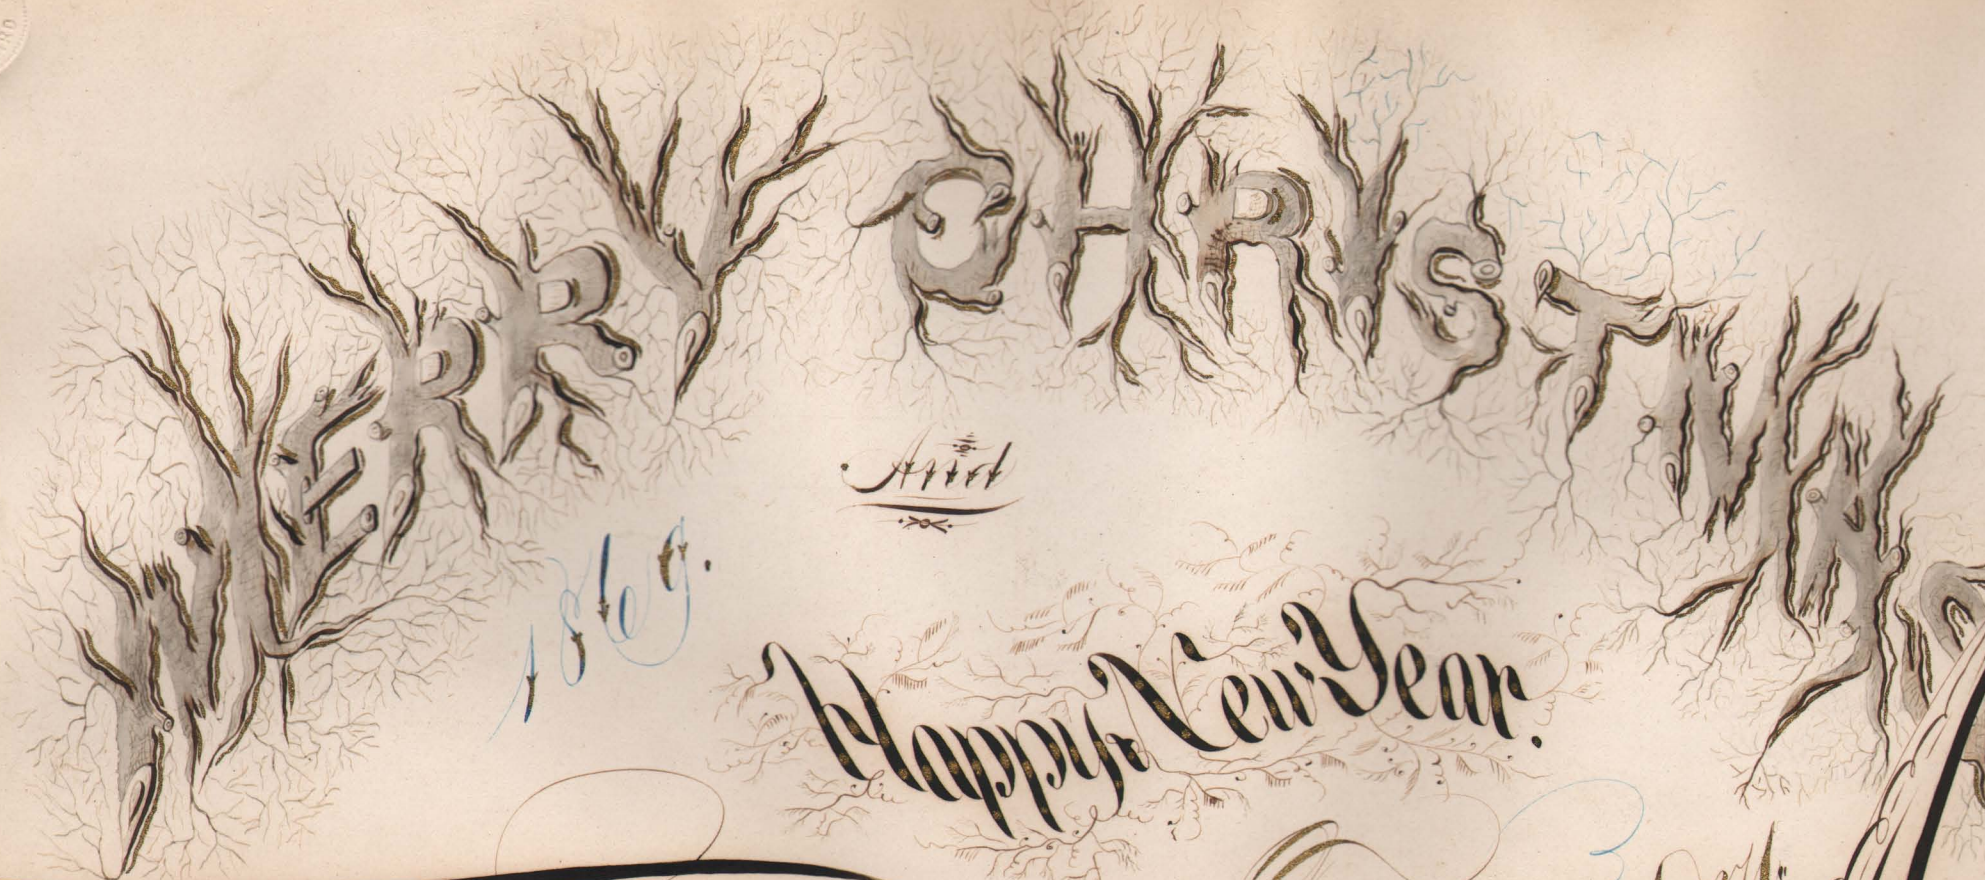 MERRY CHRISTMAS
And
1869.
Happy New Year.